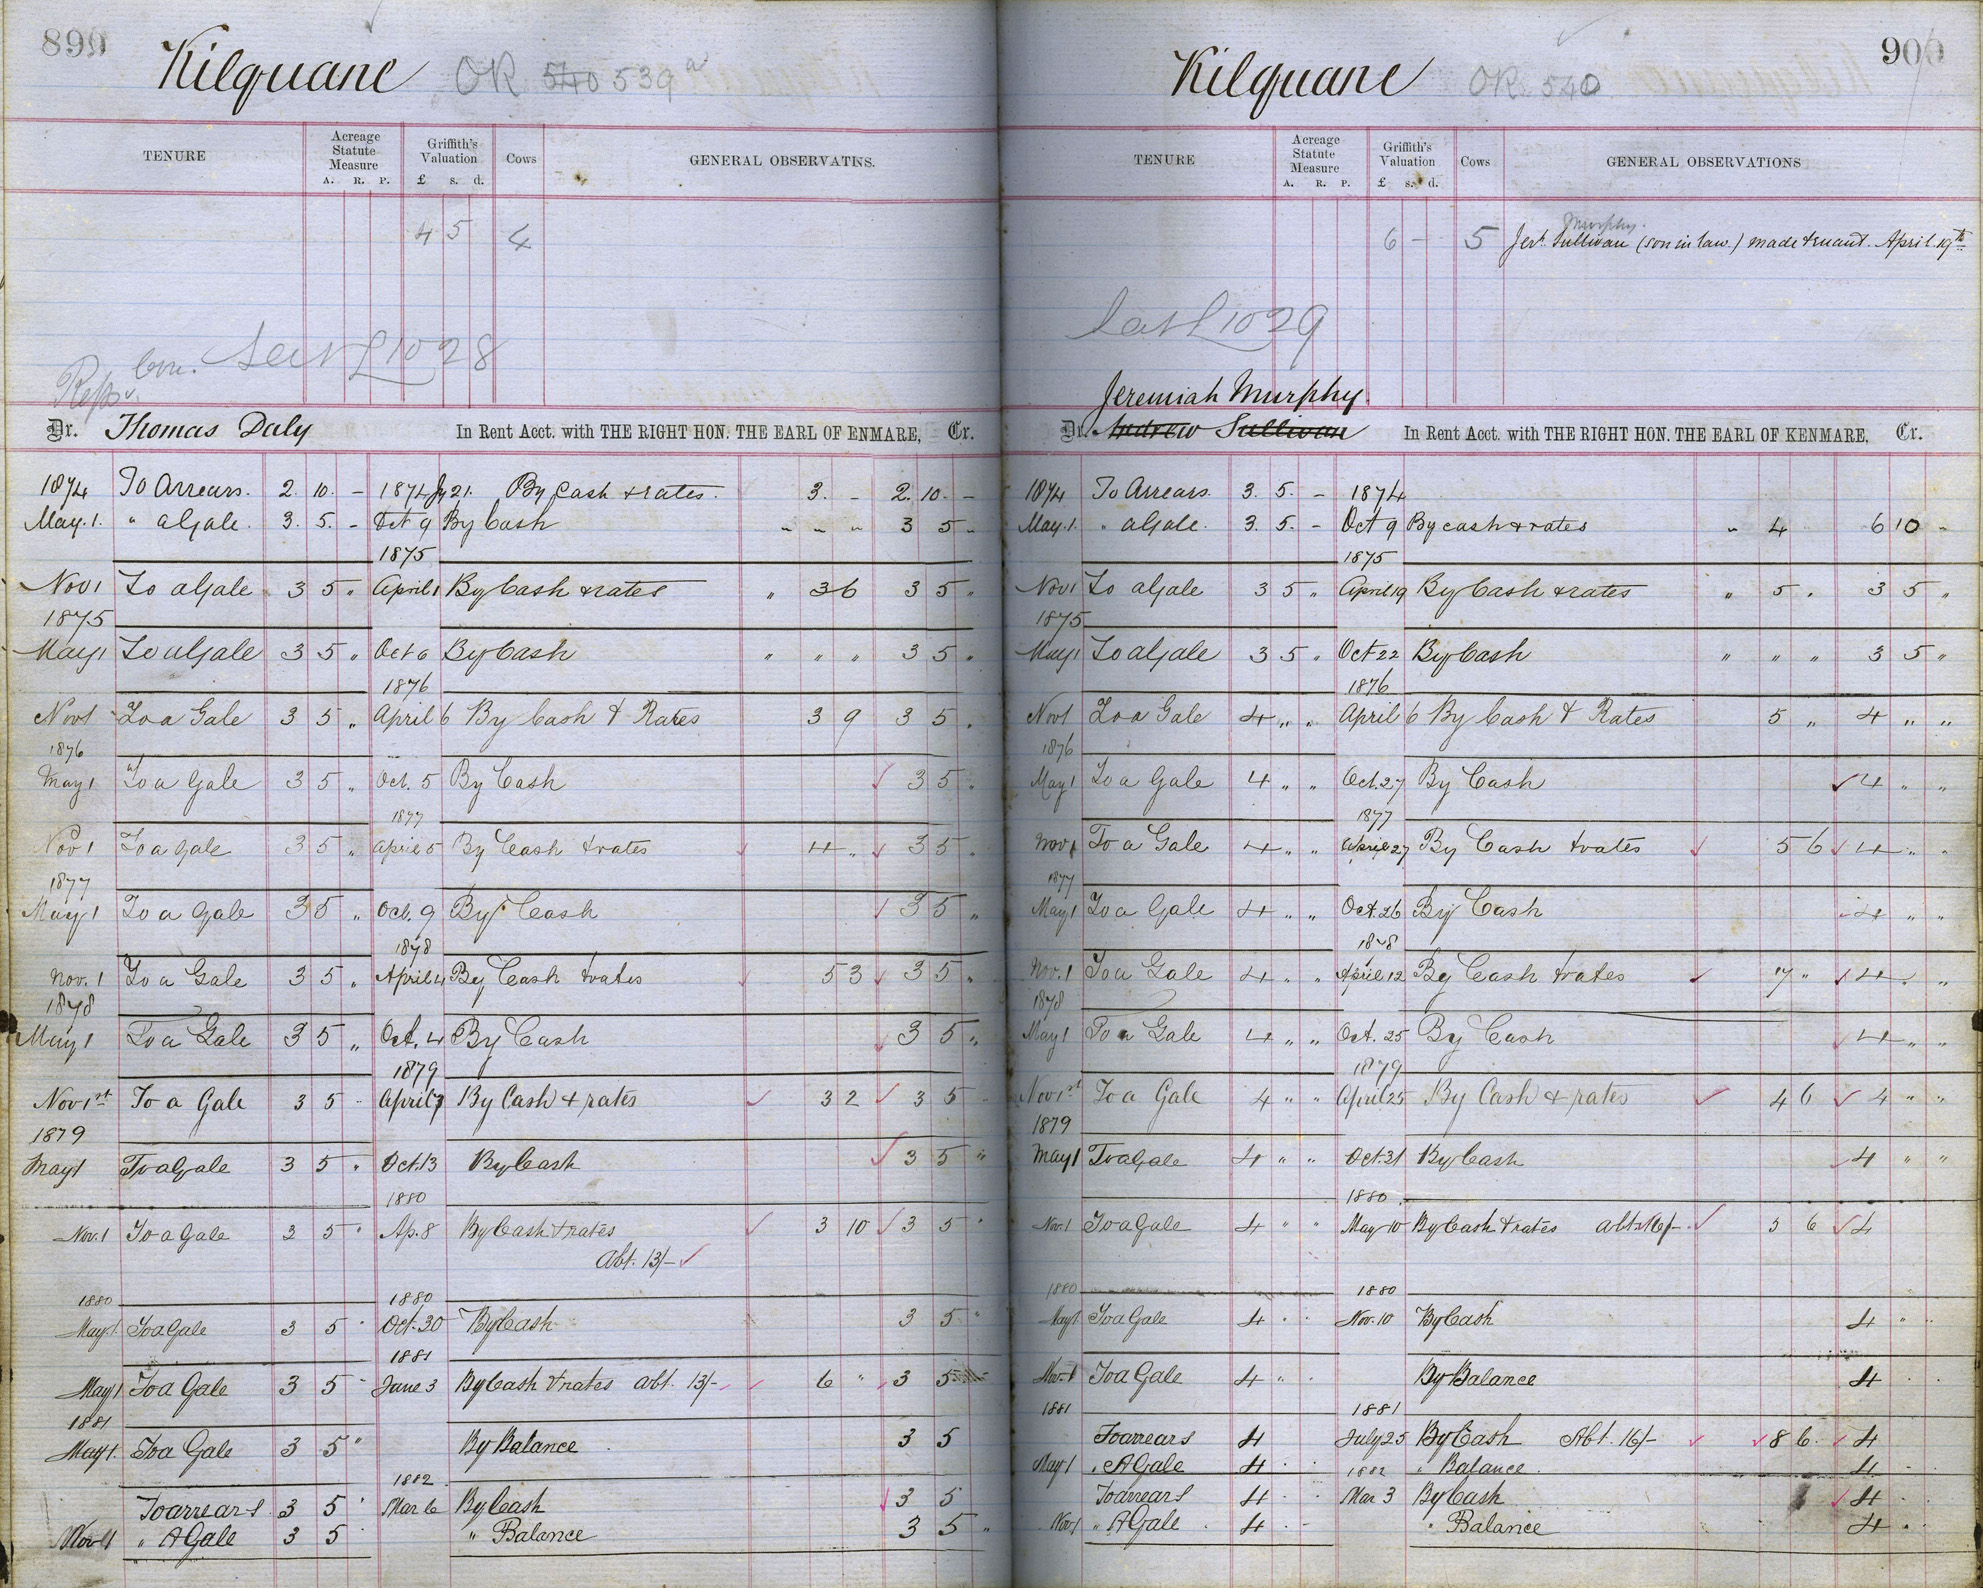 899
Kilquane OR 540 539 a
TENURE
Acreage Statute Measure
A. R. P.
Griffith's Valuation
£ s. d.
Cows
GENERAL OBSERVATINS.
4 5 4
Con. L 1028
Dr. Thomas Daly In Rent Acct. with THE RIGHT HON. THE EARL OF ENMARE, Cr.
1874 To Arrears. 2. 10. - 1874 Jy 21. By Cash & rates. 3. - 2. 10. -
May. 1. " a Gale. 3. 5. - Oct 9 By Cash " " " 3 5 "
1875
Nov 1 To a Gale 3 5 " April 1 By Cash & rates " 3 6 3 5 "
1875
May 1 To a Gale 3 5 " Oct 6 By Cash " " " 3 5 "
1876
Nov 1 To a Gale 3 5 " April 6 By Cash & Rates 3 9 3 5 "
1876
May 1 To a Gale 3 5 " Oct. 5 By Cash 3 5 "
1877
Nov 1 To a Gale 3 5 " April 5 By Cash & rates 4 " 3 5 "
1877
May 1 To a Gale 3 5 " Oct. 9 By Cash 3 5 "
1878
Nov. 1 To a Gale 3 5 " April 4 By Cash & rates 5 3 3 5 "
1878
May 1 To a Gale 3 5 " Oct. 4 By Cash 3 5 "
1879
Nov 1st To a Gale 3 5 " April 7 By Cash & rates 3 2 3 5 "
1879
May 1 To a Gale 3 5 " Oct. 13 By Cash 3 5 "
1880
Nov. 1 To a Gale 3 5 " Ap. 8 By Cash & rates 3 10 3 5 "
Abt. 13/-
1880 1880
May 1. To a Gale 3 5 " Oct. 30 By Cash 3 5 "
1881
May 1 To a Gale 3 5 - June 3 By Cash & rates abt. 13/- 6 " 3 5
1881
May 1. To a Gale 3 5 " By Balance 3 5
1882
To arrears 3 5 " Mar 6 By Cash 3 5
Nov 1 " A Gale 3 5 " Balance 3 5 "
900
Kilquane OR 540
TENURE
Acreage Statute Measure
A. R. P.
Griffith's Valuation
£ s. d.
Cows
GENERAL OBSERVATIONS
Murphy.
6 - 5 Jerh. Sullivan (son in law.) made tenant. April. 19th
L 1029
Jeremiah Murphy.
Dr. Andrew Sullivan In Rent Acct. with THE RIGHT HON. THE EARL OF KENMARE, Cr.
1874 To Arrears. 3. 5. - 1874
May. 1. " a Gale. 3. 5. - Oct 9 By cash & rates " 4 6 10 "
1875
Nov 1 To a Gale 3 5 " April 19 By Cash & rates " 5 " 3 5 "
1875
May 1 To a Gale 3 5 " Oct 22 By Cash " " " 3 5 "
1876
Nov 1 To a Gale 4 " " April 6 By Cash & Rates 5 " 4 " "
1876
May 1 To a Gale 4 " " Oct. 27 By Cash 4 " "
1877
Nov 1 To a Gale 4 " " April 27 By Cash & rates 5 6 4 " "
1877
May 1 To a Gale 4 " " Oct. 26 By Cash 4 " "
1878
Nov. 1 To a Gale 4 " " April 12 By Cash & rates 7 " 4 " "
1878
May 1 To a Gale 4 " " Oct. 25 By Cash 4 " "
1879
Nov 1st To a Gale 4 " " April 25 By Cash & rates 4 6 4 " "
1879
May 1 To a Gale 4 " " Oct. 31 By Cash 4 " "
1880
Nov. 1 To a Gale 4 " " May 10 By Cash & rates abt. 16/- 3 6 4
1880 1880
May 1 To a Gale 4 " " Nov. 10 By Cash 4 " "
Nov. 1 To a Gale 4 " " By Balance 4 " "
1881 1881
To arrears 4 July 25 By Cash Abt. 16/- 8 6 4
May 1 " A Gale 4 " " 1882 " Balance 4 "
To arrears 4 " " Mar 3 By Cash 4 "
Nov 1 " A Gale 4 " - " Balance 4 "